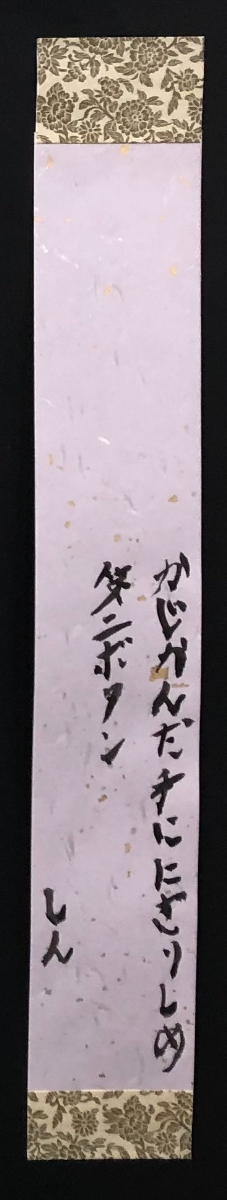 かじかんだ手ににぎりしめ
第二ボタン
しん